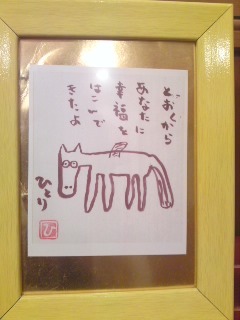 とおくから
あなたに
幸福を
はこんで
きたよ
ひとり
ひ